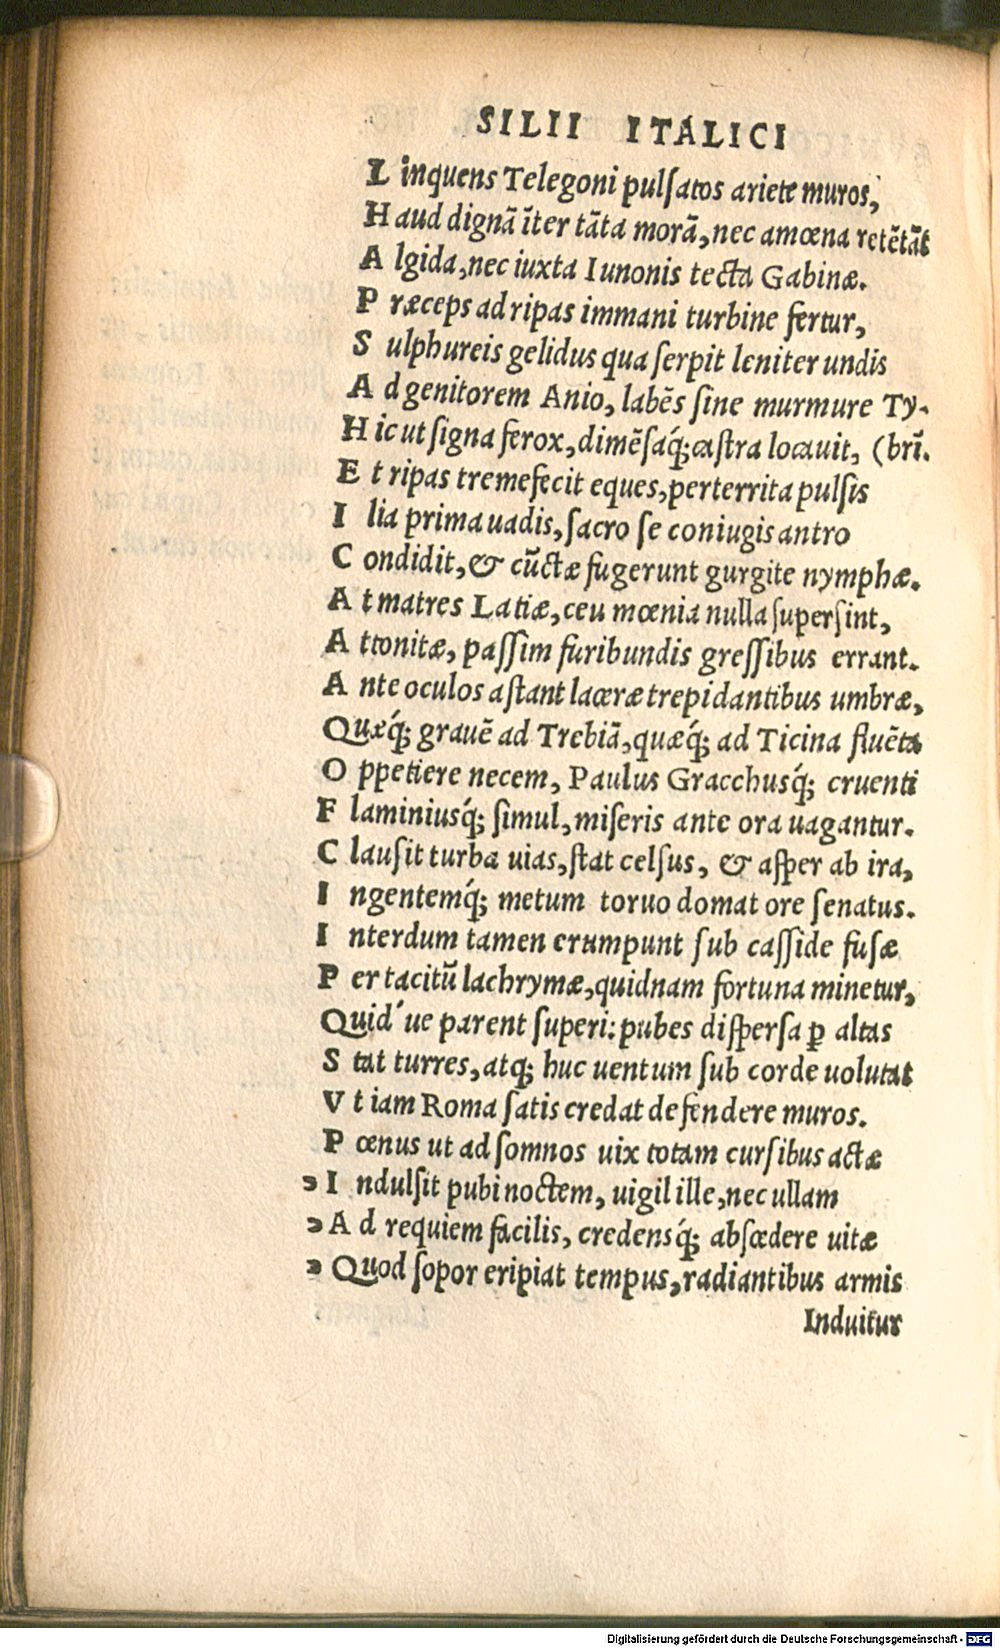 SILII ITALICI
Linquens Telegoni pulſatos ariete muros,
Haud dignā īter tāta morā, nec amœna retētāt
Algida, nec iuxta Iunonis tecta Gabinæ.
Præceps ad ripas immani turbine fertur,
Sulphureis gelidus qua ſerpit leniter undis
Ad genitorem Anio, labēs ſine murmure Ty-
Hic ut ſigna ferox, dimēſaq́; caſtra locauit, (brī.
Et ripas tremefecit eques, perterrita pulſis
Ilia prima uadis, ſacro ſe coniugis antro
Condidit, & cūctæ fugerunt gurgite nymphæ.
At matres Latiæ, ceu mœnia nulla ſuperſint,
Attonitæ, paſſim furibundis greſſibus errant.
Ante oculos aſtant laceræ trepidantibus umbræ,
Quæq́; grauē ad Trebiā, quæq́; ad Ticina fluēta
Oppetiere necem, Paulus Gracchusq́; cruenti
Flaminiusq́; ſimul, miſeris ante ora uagantur.
Clauſit turba uias, ſtat celſus, & aſper ab ira,
Ingentemq́; metum toruo domat ore ſenatus.
Interdum tamen erumpunt ſub caſſide fuſæ
Per tacitū lachrymæ, quidnam fortuna minetur,
Quid´ue parent ſuperi: pubes diſperſa ꝑ altas
Stat turres, atq; huc uentum ſub corde uolutat
Vt iam Roma ſatis credat defendere muros.
Pœnus ut ad ſomnos uix totam curſibus actæ
Indulſit pubi noctem, uigil ille, nec ullam
Ad requiem facilis, credensq́; abſcedere uitæ
Quod ſopor eripiat tempus, radiantibus armis
Induitur
Digitalisierung gefördert durch die Deutsche Forschungsgemeinschaft - DFG